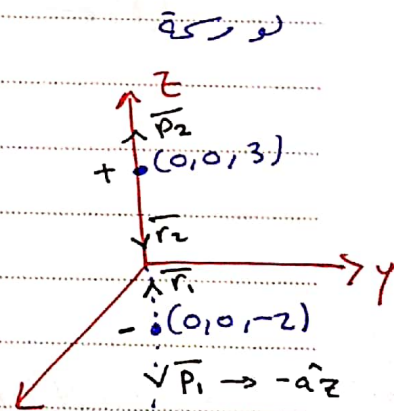 لو ركة
Z
P2
+ (0,0,3)
r2
y
r1
- (0,0,-2)
P1 → -âz